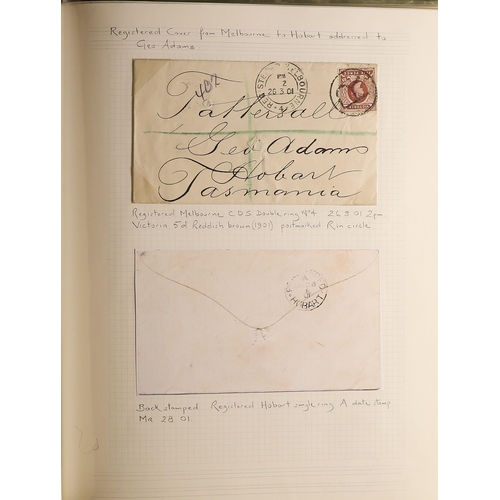 Registered Cover from Melbourne to Hobart addressed to
Geo Adams
402
REGISTERED MELBOURNE
2
26.3.01
4
Tattersall
Geo Adams
Hobart
Tasmania
Registered Melbourne C.D.S Double ring No4 26 3 01 2pm
Victoria 5d Reddish brown (1901) postmarked R in circle
A
HOBART
Back stamped Registered Hobart single ring A date stamp
Mr 28 01